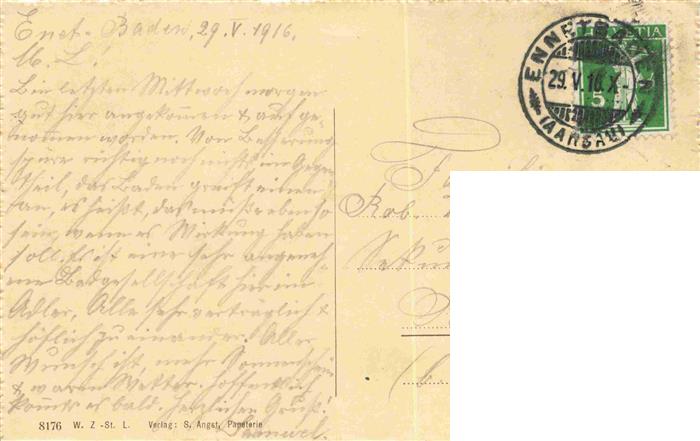 Enet-Baden, 29. V. 1916.
M. L.!
Bin letzten Mittwoch morgen
gut hier angekommen & aufge-
nommen worden. Von Besserung
spüre richtig noch nichts, im Gegen-
theil, das Baden greift einen
an, es heißt, das müße eben so
sein, wenn es Wirkung haben
soll. Es ist eine sehr angeneh-
me Badgesellschaft hier im
Adler, Alle sehr verträglich &
höflich zu einander. Aller
Wunsch ist, mehr Sonnenschein
& waren Wetter. Hoffentlich
kommt es bald. Herzlichen Gruß!
8176 W. Z.-St. L. Verlag: S. Angst, Papeterie
HELVETIA
5
ENNETBADEN
29.V.16.X-
(AARGAU)
Rob.
Seku